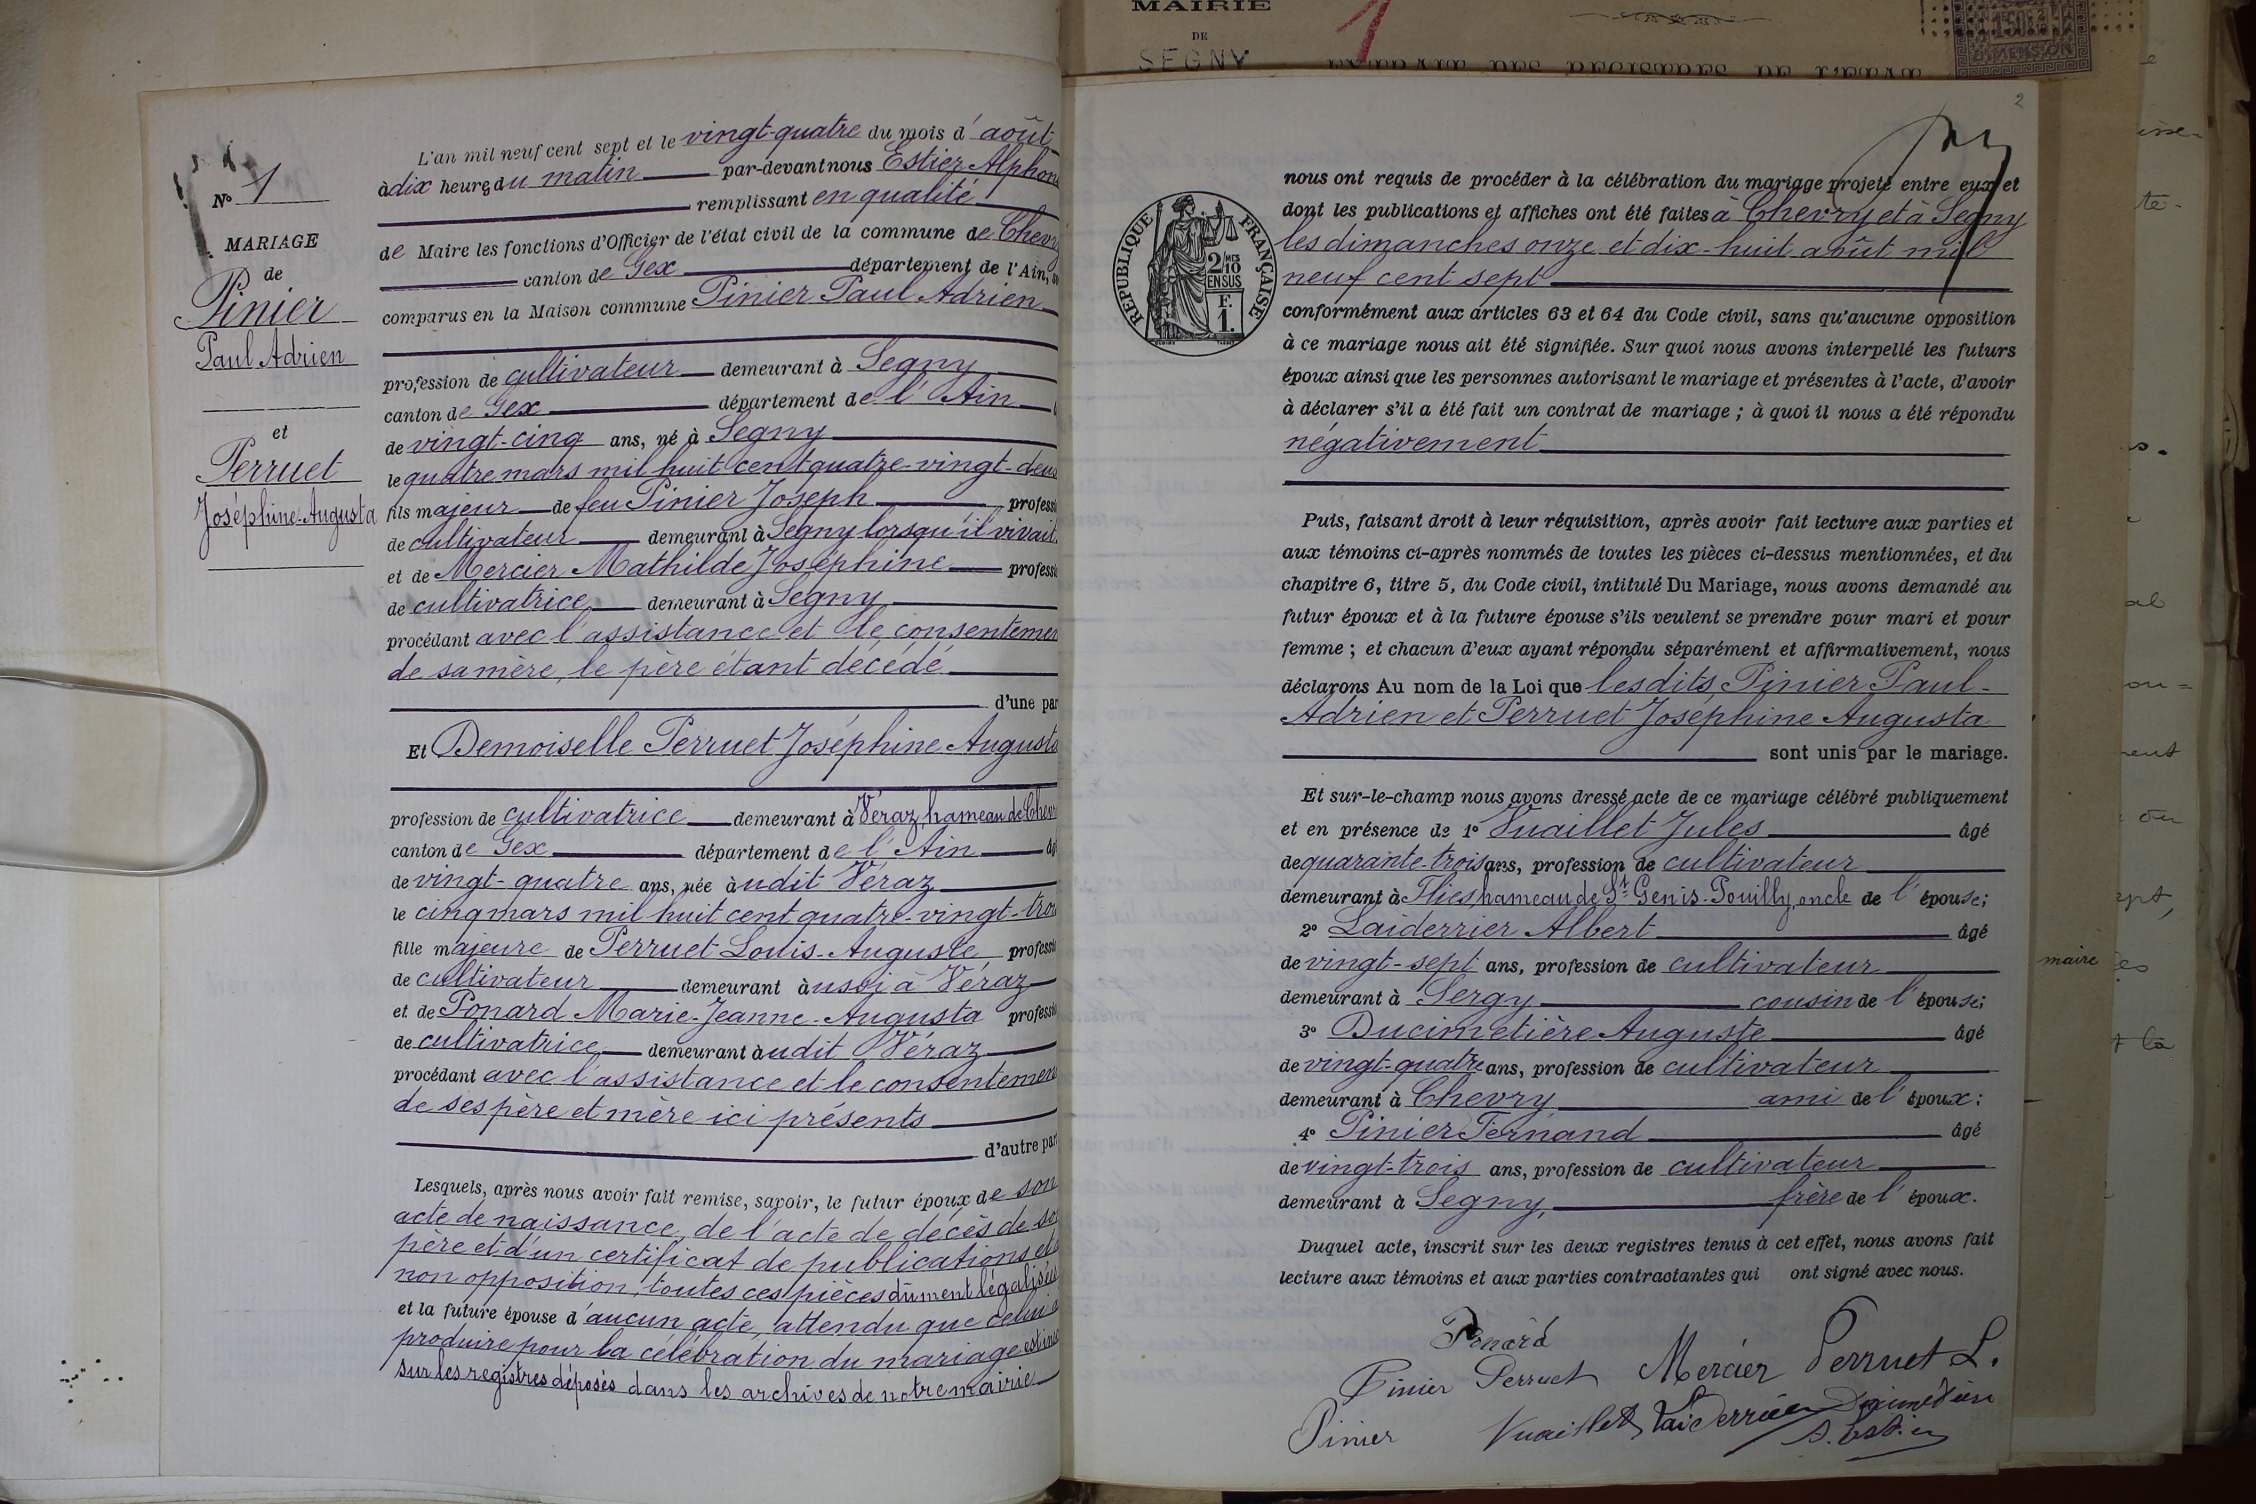 N° 1
MARIAGE
de
Pinier
Paul Adrien
et
Perruet
Joséphine-Augusta
L'an mil neuf cent sept et le vingt-quatre du mois d'août
à dix heures du matin par-devant nous Estier Alphons
remplissant en qualité
de Maire les fonctions d'Officier de l'état civil de la commune de Chevry
canton de Gex département de l'Ain,
comparus en la Maison commune Pinier Paul Adrien
profession de cultivateur demeurant à Segny
canton de Gex département de l'Ain
de vingt-cinq ans, né à Segny
le quatre mars mil huit cent quatre-vingt-deux
fils majeur de feu Pinier Joseph professi
de cultivateur demeurant à Segny lorsqu'il vivait.
et de Mercier Mathilde Joséphine professi
de cultivatrice demeurant à Segny
procédant avec l'assistance et le consentemen
de sa mère, le père étant décédé
d'une par
Et Demoiselle Perruet Joséphine Augusta
profession de cultivatrice demeurant à Véraz, hameau de Chevr
canton de Gex département de l'Ain âg
de vingt-quatre ans, née audit Véraz
le cinq mars mil huit cent quatre-vingt-troi
fille majeure de Perruet Louis-Auguste, professi
de cultivateur demeurant aussi à Véraz
et de Ponard Marie-Jeanne-Augusta professi
de cultivatrice demeurant audit Véraz
procédant avec l'assistance et le consentemen
de ses père et mère ici présents
d'autre par
Lesquels, après nous avoir fait remise, savoir, le futur époux de son
acte de naissance, de l'acte de décès de so
père et d'un certificat de publications et
non opposition, toutes ces pièces dûment légalisées
et la future épouse d'aucun acte, attendu que celui à
produire pour la célébration du mariage est ins
sur les registres déposés dans les archives de notre mairie
MAIRIE
DE
SEGNY
1
EXTRAIT DES REGISTRES DE L'ETAT
DIMENSION
2
RÉPUBLIQUE FRANÇAISE
2 MES
10
EN SUS
F.
1.
nous ont requis de procéder à la célébration du mariage projeté entre eux et
dont les publications et affiches ont été faites à Chevry et à Segny
les dimanches onze et dix-huit août mil
neuf cent sept
conformément aux articles 63 et 64 du Code civil, sans qu'aucune opposition
à ce mariage nous ait été signifiée. Sur quoi nous avons interpellé les futurs
époux ainsi que les personnes autorisant le mariage et présentes à l'acte, d'avoir
à déclarer s'il a été fait un contrat de mariage ; à quoi il nous a été répondu
négativement
Puis, faisant droit à leur réquisition, après avoir fait lecture aux parties et
aux témoins ci-après nommés de toutes les pièces ci-dessus mentionnées, et du
chapitre 6, titre 5, du Code civil, intitulé Du Mariage, nous avons demandé au
futur époux et à la future épouse s'ils veulent se prendre pour mari et pour
femme ; et chacun d'eux ayant répondu séparément et affirmativement, nous
déclarons Au nom de la Loi que lesdits Pinier Paul-
Adrien et Perruet Joséphine Augusta
sont unis par le mariage.
Et sur-le-champ nous avons dressé acte de ce mariage célébré publiquement
et en présence de 1° Vuaillet Jules âgé
de quarante-trois ans, profession de cultivateur
demeurant à Flies hameau de St Genis-Pouilly, oncle de l'épouse;
2° Laiderrier Albert âgé
de vingt-sept ans, profession de cultivateur
demeurant à Sergy cousin de l'épouse;
3° Ducimetière Auguste âgé
de vingt-quatre ans, profession de cultivateur
demeurant à Chevry ami de l'époux;
4° Pinier Fernand âgé
de vingt-trois ans, profession de cultivateur
demeurant à Segny, frère de l'époux.
Duquel acte, inscrit sur les deux registres tenus à cet effet, nous avons fait
lecture aux témoins et aux parties contractantes qui ont signé avec nous.
Ponard
Pinier Perruet Mercier Perruet L.
Pinier Vuaillet Laiderrier Ducimetière
A. Estier
maire